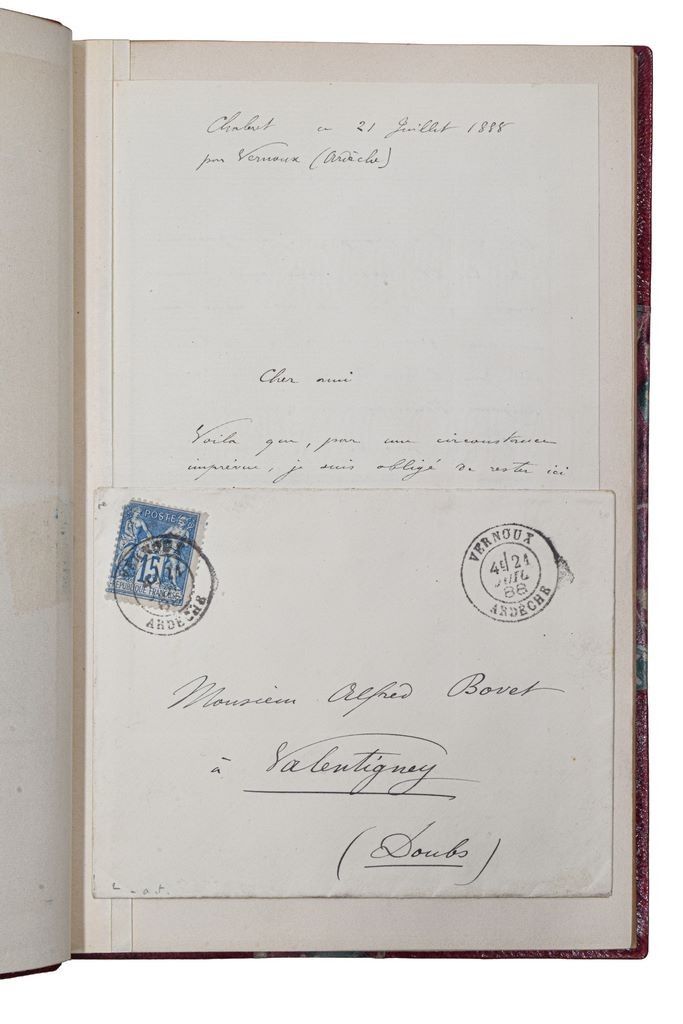 Chabret ce 21 Juillet 1888
par Vernoux (Ardèche)
Cher ami
Voilà que, par une circonstance
imprévue, je suis obligé de rester ici
POSTES
15
RÉPUBLIQUE FRANÇAISE
VERNOUX
ARDÈCHE
VERNOUX
4E 21
JUIL
88
ARDÈCHE
Monsieur Alfred Bovet
à Valentigney
(Doubs)